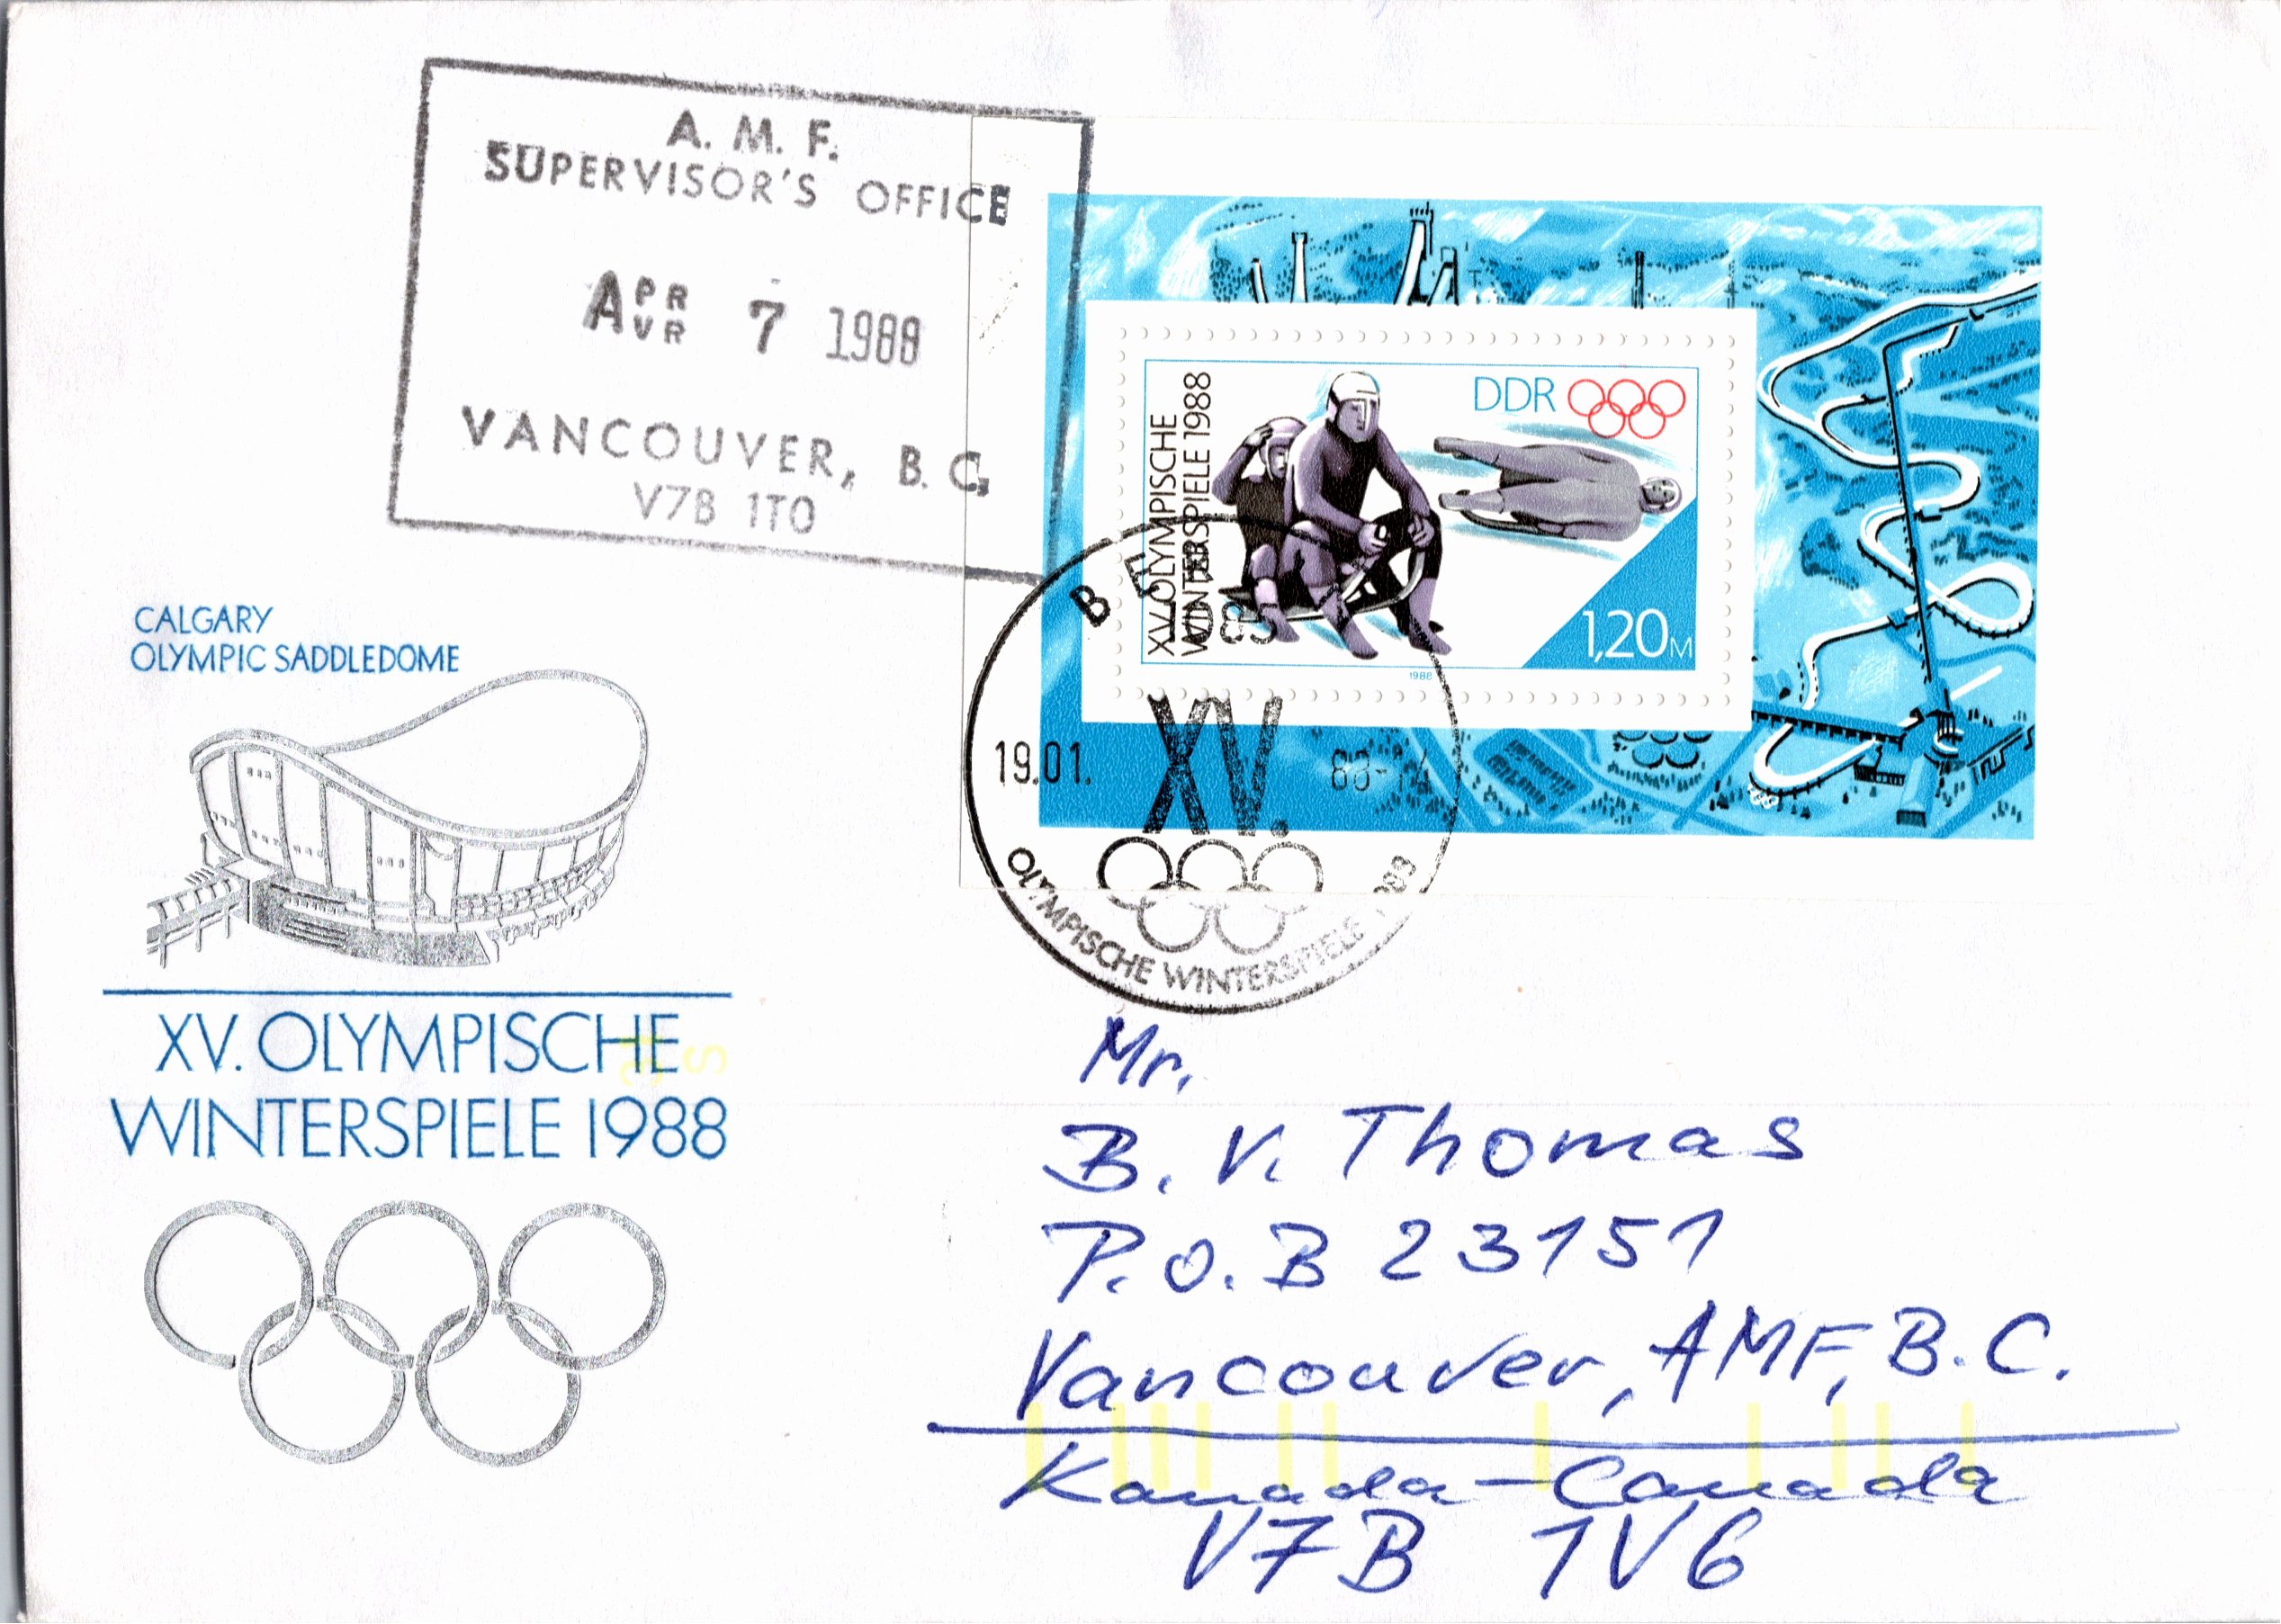 A. M. F.
SUPERVISOR'S OFFICE
APR
AVR
7 1988
VANCOUVER, B.C.
V7B 1T0
DDR
XV. OLYMPISCHE
WINTERSPIELE 1988
1,20 M
1988
1085
19.01. 88-
XV.
OLYMPISCHE WINTERSPIELE 1988
CALGARY
OLYMPIC SADDLEDOME
XV. OLYMPISCHE
WINTERSPIELE 1988
Mr.
B. V. Thomas
P.O.B 23151
Vancouver, AMF, B.C.
Kanada – Canada
V7B 1V6